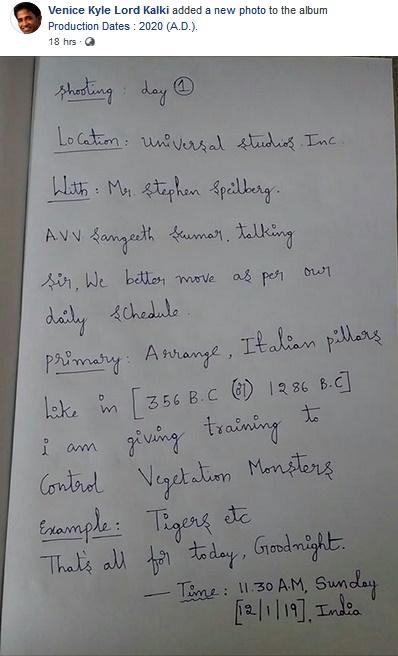 Venice Kyle Lord Kalki added a new photo to the album
Production Dates : 2020 (A.D.).
18 hrs ·
Shooting : day 1
Location : Universal Studios. Inc.
With : Mr. Stephen Speilberg.
A.V.V Sangeeth Kumar. talking
Sir, We better move as per our
daily Schedule.
Primary : Arrange, Italian pillars
Like in [356 B.C (or) 1286 B.C]
i am giving training to
Control Vegetation Monsters
Example : Tigers etc
That's all for today, Goodnight.
— Time : 11.30 A.M, Sunday
[12/1/19], India